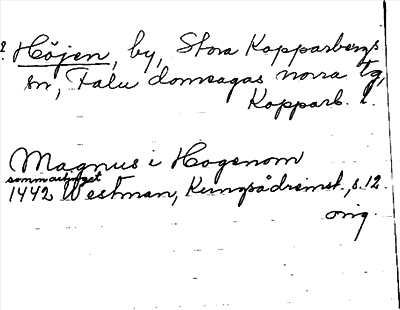 Höjen, by, Stora Kopparbergs
sn, Falu domsagas norra tg,
Kopparb. l.
Magnus i Hogenom
sommartinget
1442 Westman, Kungsådrinst., s. 12.
orig.